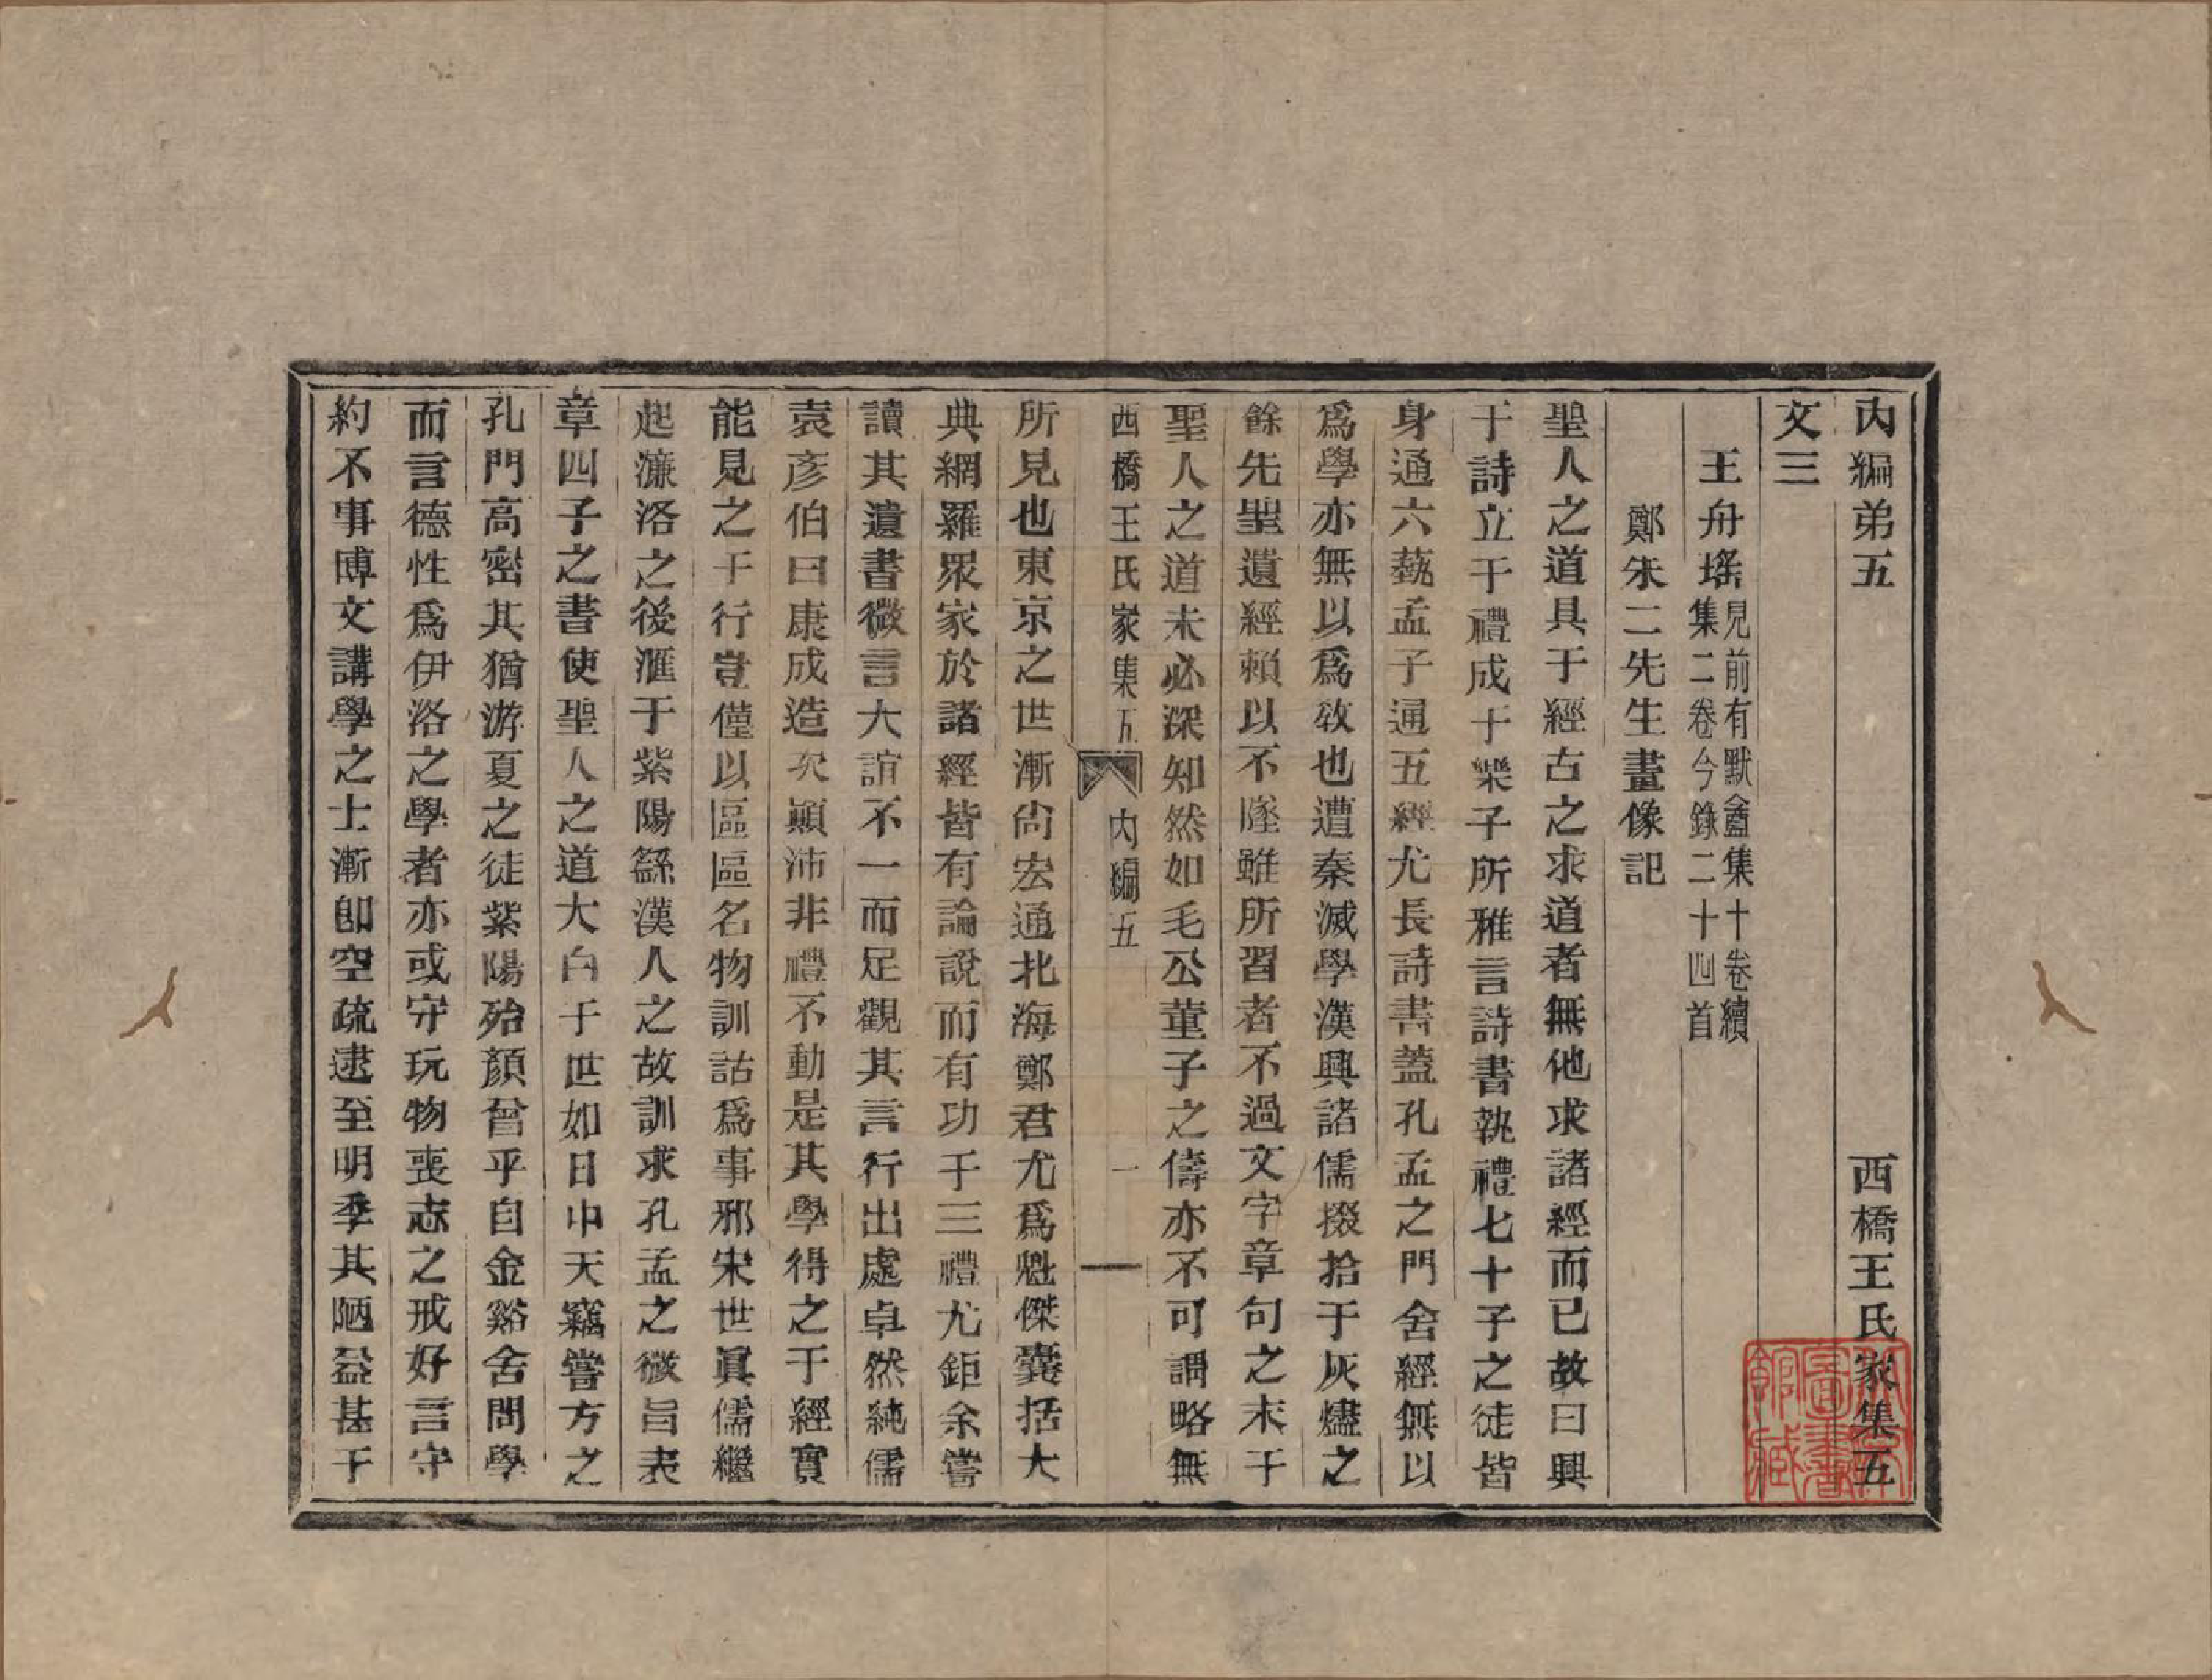 內編弟五　西橋王氏家集五
文三
王舟瑤見前有默盦集十卷續
集二卷今錄二十四首
鄭朱二先生畫像記
聖人之道具于經古之求道者無他求諸經而已故曰興
于詩立于禮成于樂子所雅言詩書執禮七十子之徒皆
身通六藝孟子通五經尤長詩書蓋孔孟之門舍經無以
爲學亦無以爲敎也遭秦滅學漢興諸儒掇拾于灰燼之
餘先聖遺經賴以不墜雖所習者不過文字章句之末于
聖人之道未必深知然如毛公董子之儔亦不可謂略無
西橋王氏家集五　內編五　一
所見也東京之世漸尙宏通北海鄭君尤爲魁傑囊括大
典網羅眾家於諸經皆有論說而有功于三禮尤鉅余嘗
讀其遺書微言大誼不一而足觀其言行出處卓然純儒
袁彥伯曰康成造次顚沛非禮不動是其學得之于經實
能見之于行豈僅以區區名物訓詁爲事邪宋世眞儒繼
起濂洛之後滙于紫陽繇漢人之故訓求孔孟之微旨表
章四子之書使聖人之道大白于世如日中天竊嘗方之
孔門高密其猶游夏之徒紫陽殆顏曾乎自金谿舍問學
而言德性爲伊洛之學者亦或守玩物喪志之戒好言守
約不事博文講學之士漸卽空疏逮至明季其陋益甚于